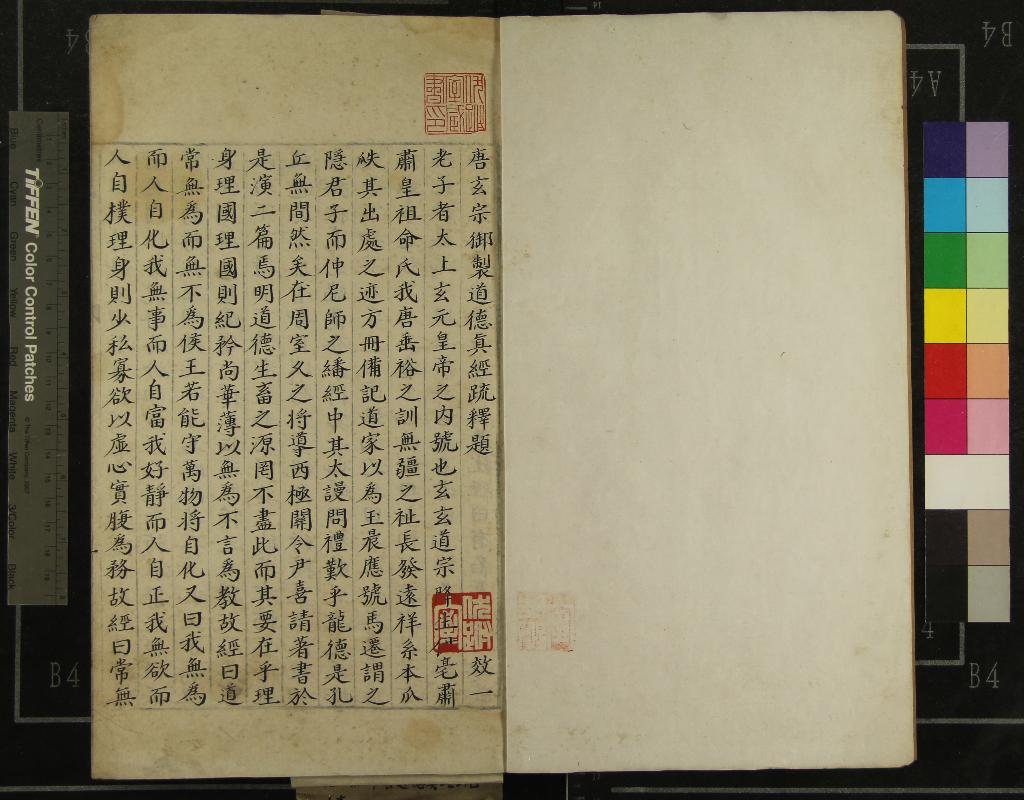 唐玄宗御製道德真經疏釋題 效一
老子者太上玄元皇帝之內號也玄玄道宗降生伊亳肅
肅皇祖命氏我唐垂裕之訓無疆之祉長發遠祥系本瓜
瓞其出處之迹方冊備記道家以為玉晨應號馬遷謂之
隱君子而仲尼師之繙經中其太謾問禮歎乎龍德是孔
丘無間然矣在周室久之將導西極關令尹喜請著書於
是演二篇焉明道德生畜之源罔不盡此而其要在乎理
身理國理國則絕矜尚華薄以無為不言為教故經曰道
常無為而無不為侯王若能守萬物將自化又曰我無為
而人自化我無事而人自富我好靜而人自正我無欲而
人自樸理身則少私寡欲以虛心實腹為務故經曰常無
TIFFEN Color Control Patches
Blue Cyan Green Yellow Red Magenta White 3/Color Black
Centimetres
B4
B4
B4
A4
4
B4